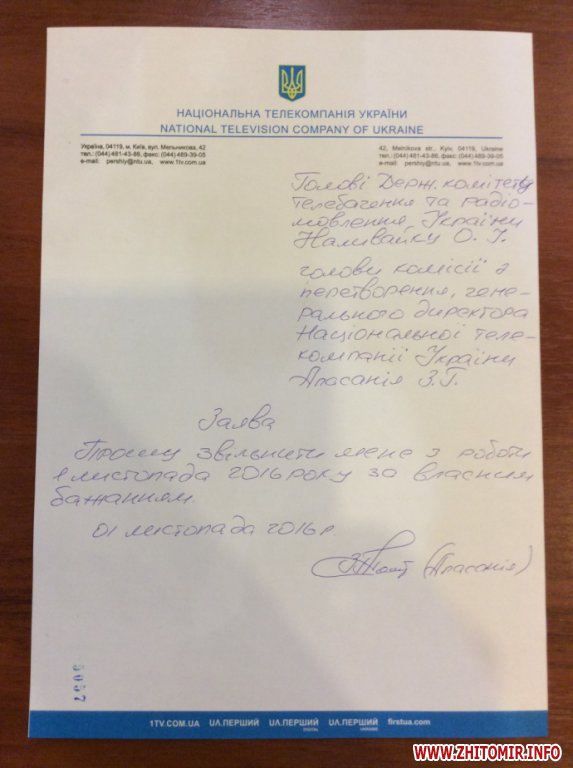 НАЦІОНАЛЬНА ТЕЛЕКОМПАНІЯ УКРАЇНИ
NATIONAL TELEVISION COMPANY OF UKRAINE
Україна, 04119, м. Київ, вул. Мельникова, 42
тел.: (044) 481-43-86, факс: (044) 489-39-05
e-mail: pershiy@ntu.ua, www.1tv.com.ua
42, Melnikova str., Kyiv, 04119, Ukraine
тел.: (044) 481-43-86, факс: (044) 489-39-05
e-mail: pershiy@ntu.ua, www.1tv.com.ua
Голові Держ. комітету
телебачення та радіо-
мовлення України
Наливайку О. І.
голови комісії з
перетворення, гене-
рального директора
Національної теле-
компанії України
Аласанія З.Г.
Заява
Прошу звільнити мене з роботи
1 листопада 2016 року за власним
бажанням.
01 листопада 2016 р.
(Аласанія)
1TV.COM.UA UA|ПЕРШИЙ UA|ПЕРШИЙ DIGITAL UA|ПЕРШИЙ UKRAINE firstua.com
WWW.ZHITOMIR.INFO